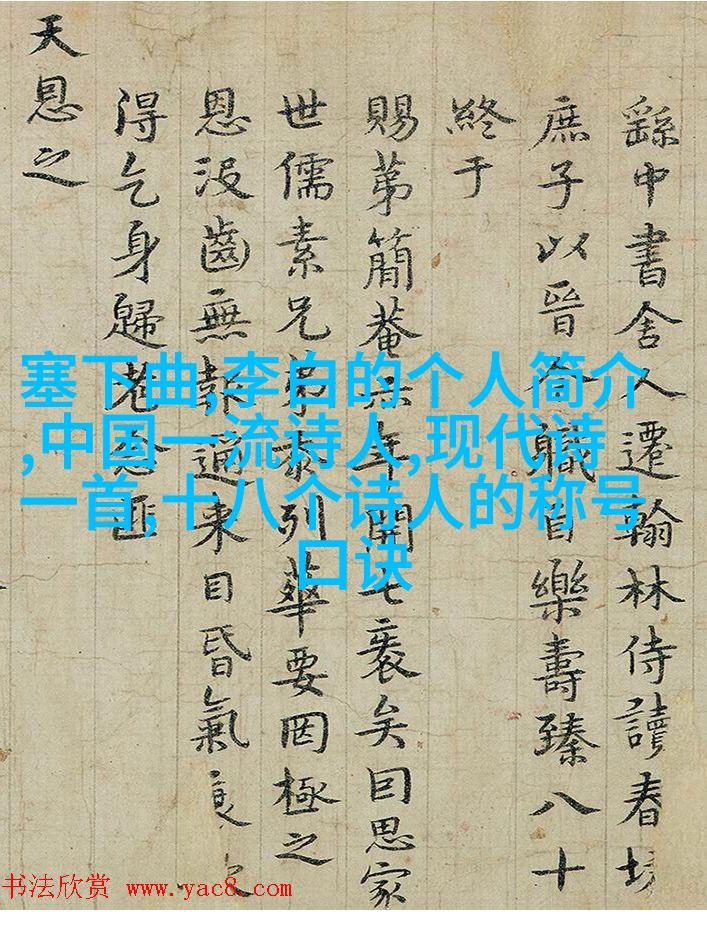 繇中書舍人遷翰林侍讀春坊
庶子以晉今職自樂壽臻八十
終于
賜第簡菴年開七袠矣囙思家
世儒素兄弟忝列華要罔極之
恩沒齒無報邇來目昏氣衰
得乞身歸老念匪
天恩之
塞下曲,李白的个人简介
,中国一流诗人,现代诗
一首,十八个诗人的称号
口诀
书法欣赏 www.yac8.com